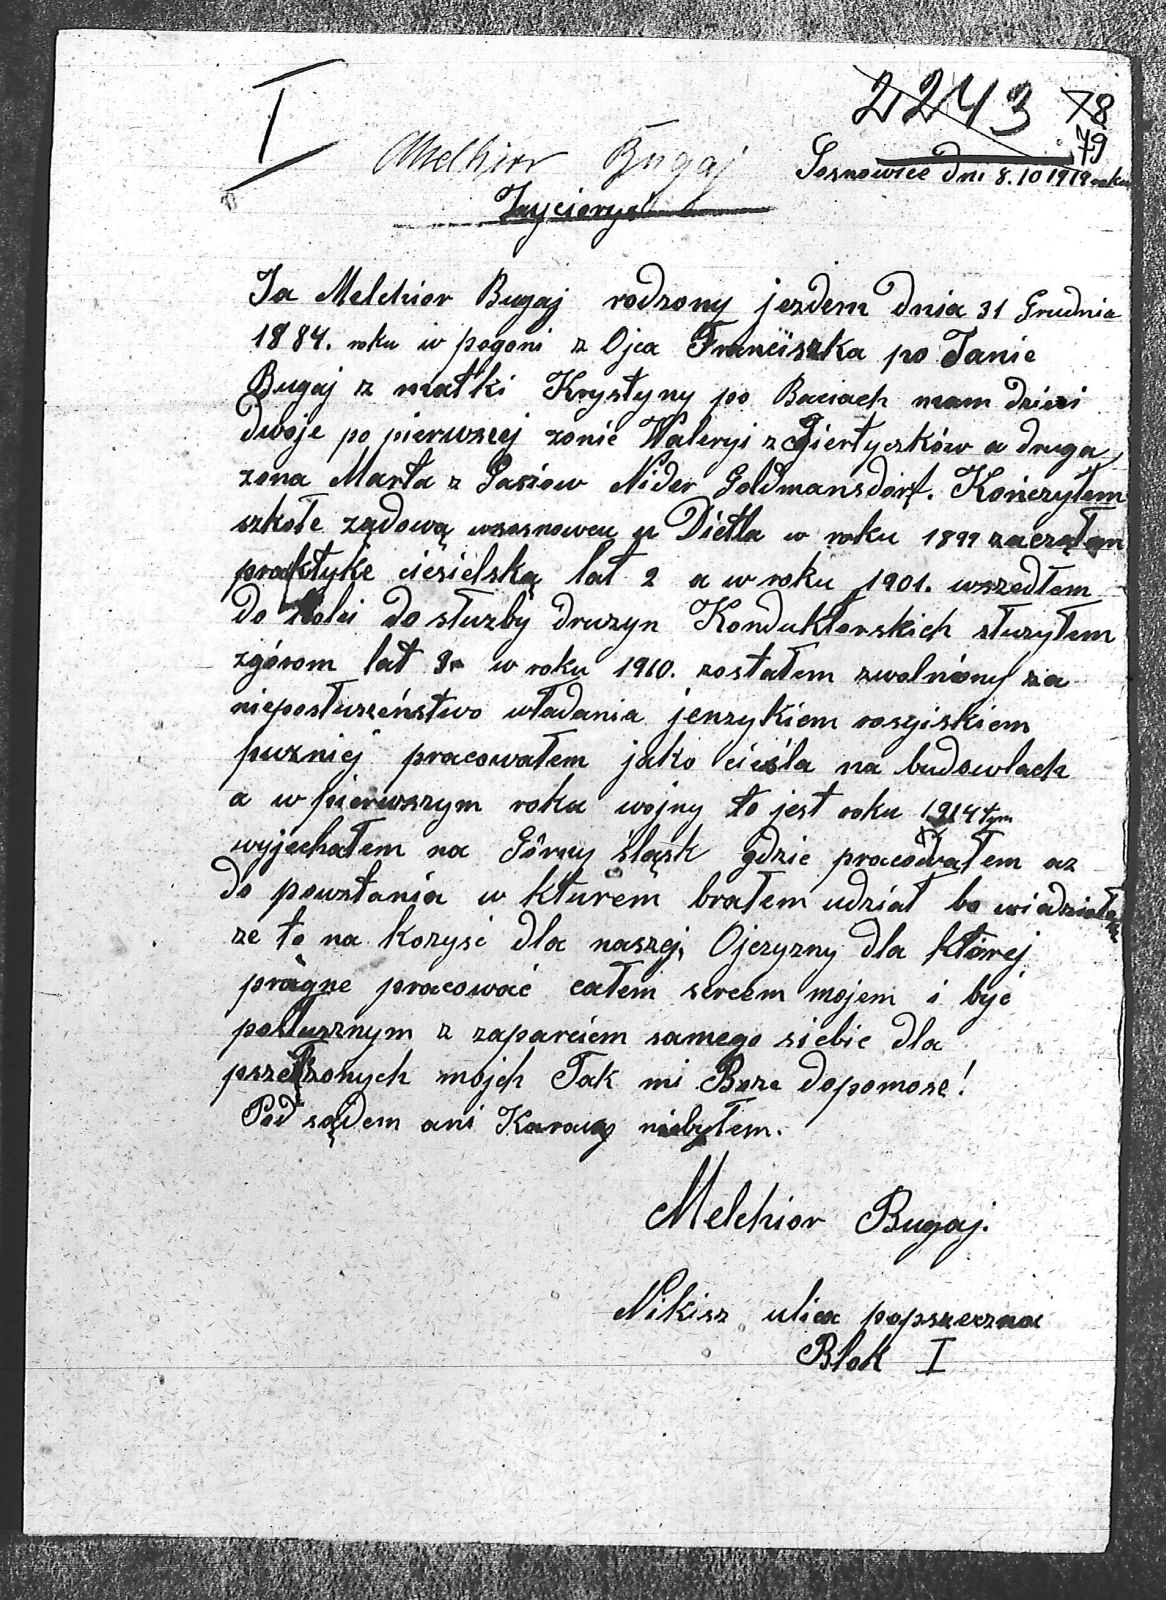 I
2243 78
79
Melchior Bugaj
Sosnowice dni 8.10 1919 roku
Życiorys
Ja Melchior Bugaj rodzony jezdem dnia 31 Grudnia
1884. roku w pogoni z Ojca Franciszka po Janie
Bugaj z matki Krystyny po Baciach mam dzieci
dwoje po pierwszej zonie Waleryi z Giertyczków a druga
zona Marta z Nider Goldmansdorf. Kończyłem
szkołe wsosnowcu u Dietla w roku 1899 zacząłem
praktyke ciesielską lat 2 a w roku 1901. wszedłem
do kolei do słuzby druzyn Konduktorskich słuzyłem
zgórom lat 8. w roku 1910. zostałem zwolniony za
nieposłuszeństwo władania jenzykiem rosyiskiem
puzniej pracowałem jako cieśla na budowlach
a w pierwszym roku wojny to jest roku 1914tym
wyjechałem na Górny Śląsk gdzie pracowałem az
do powstania w kturem brałem udział bo wiedziałem
ze to na kozyść dla naszej Ojczyzny dla której
prágne pracować całem sercem mojem i być
posłusznym z zaparciem samego siebie dla
przełzonych mojch Tak mi Boze dopomosc!
Pod sądem ani Karany niebyłem.
Melchior Bugaj.
Nikisz ulica popszeczna
Blok I